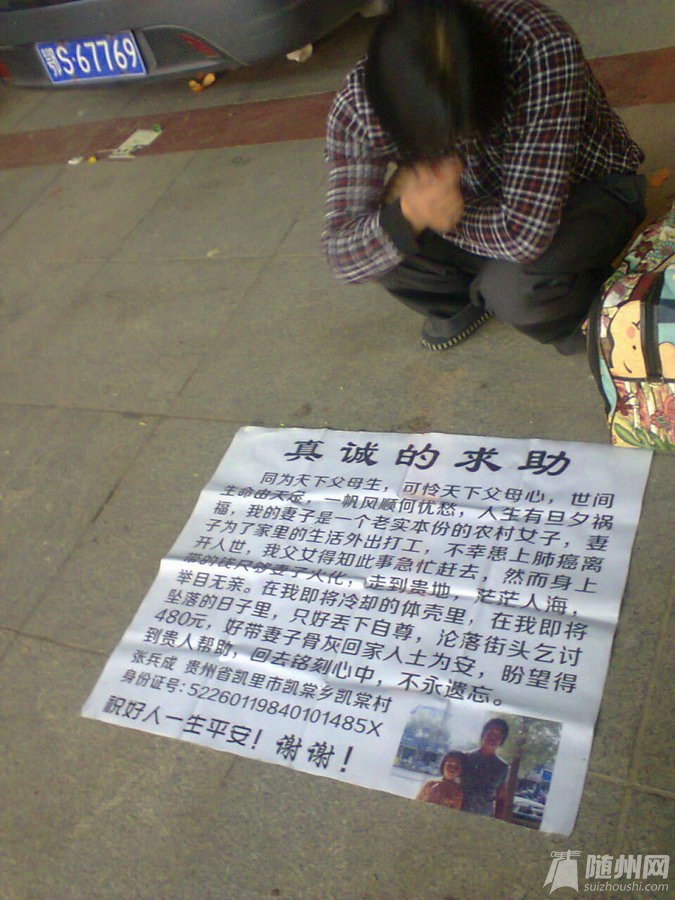 鄂S·67769
真诚的求助
同为天下父母生，可怜天下父母心，世间
生命由天定，一帆风顺何忧愁，人生有旦夕祸
福，我的妻子是一个老实本份的农村女子，妻
子为了家里的生活外出打工，不幸患上肺癌离
开人世，我父女得知此事急忙赶去，然而身上
带的钱只够妻子火化，走到贵地，茫茫人海，
举目无亲。在我即将冷却的体壳里，在我即将
坠落的日子里，只好丢下自尊，沦落街头乞讨
480元，好带妻子骨灰回家人土为安，盼望得
到贵人帮助，回去铭刻心中，不永遗忘。
张兵成 贵州省凯里市凯棠乡凯棠村
身份证号：52260119840101485X
祝好人一生平安！谢谢！
随州网
suizhoushi.com